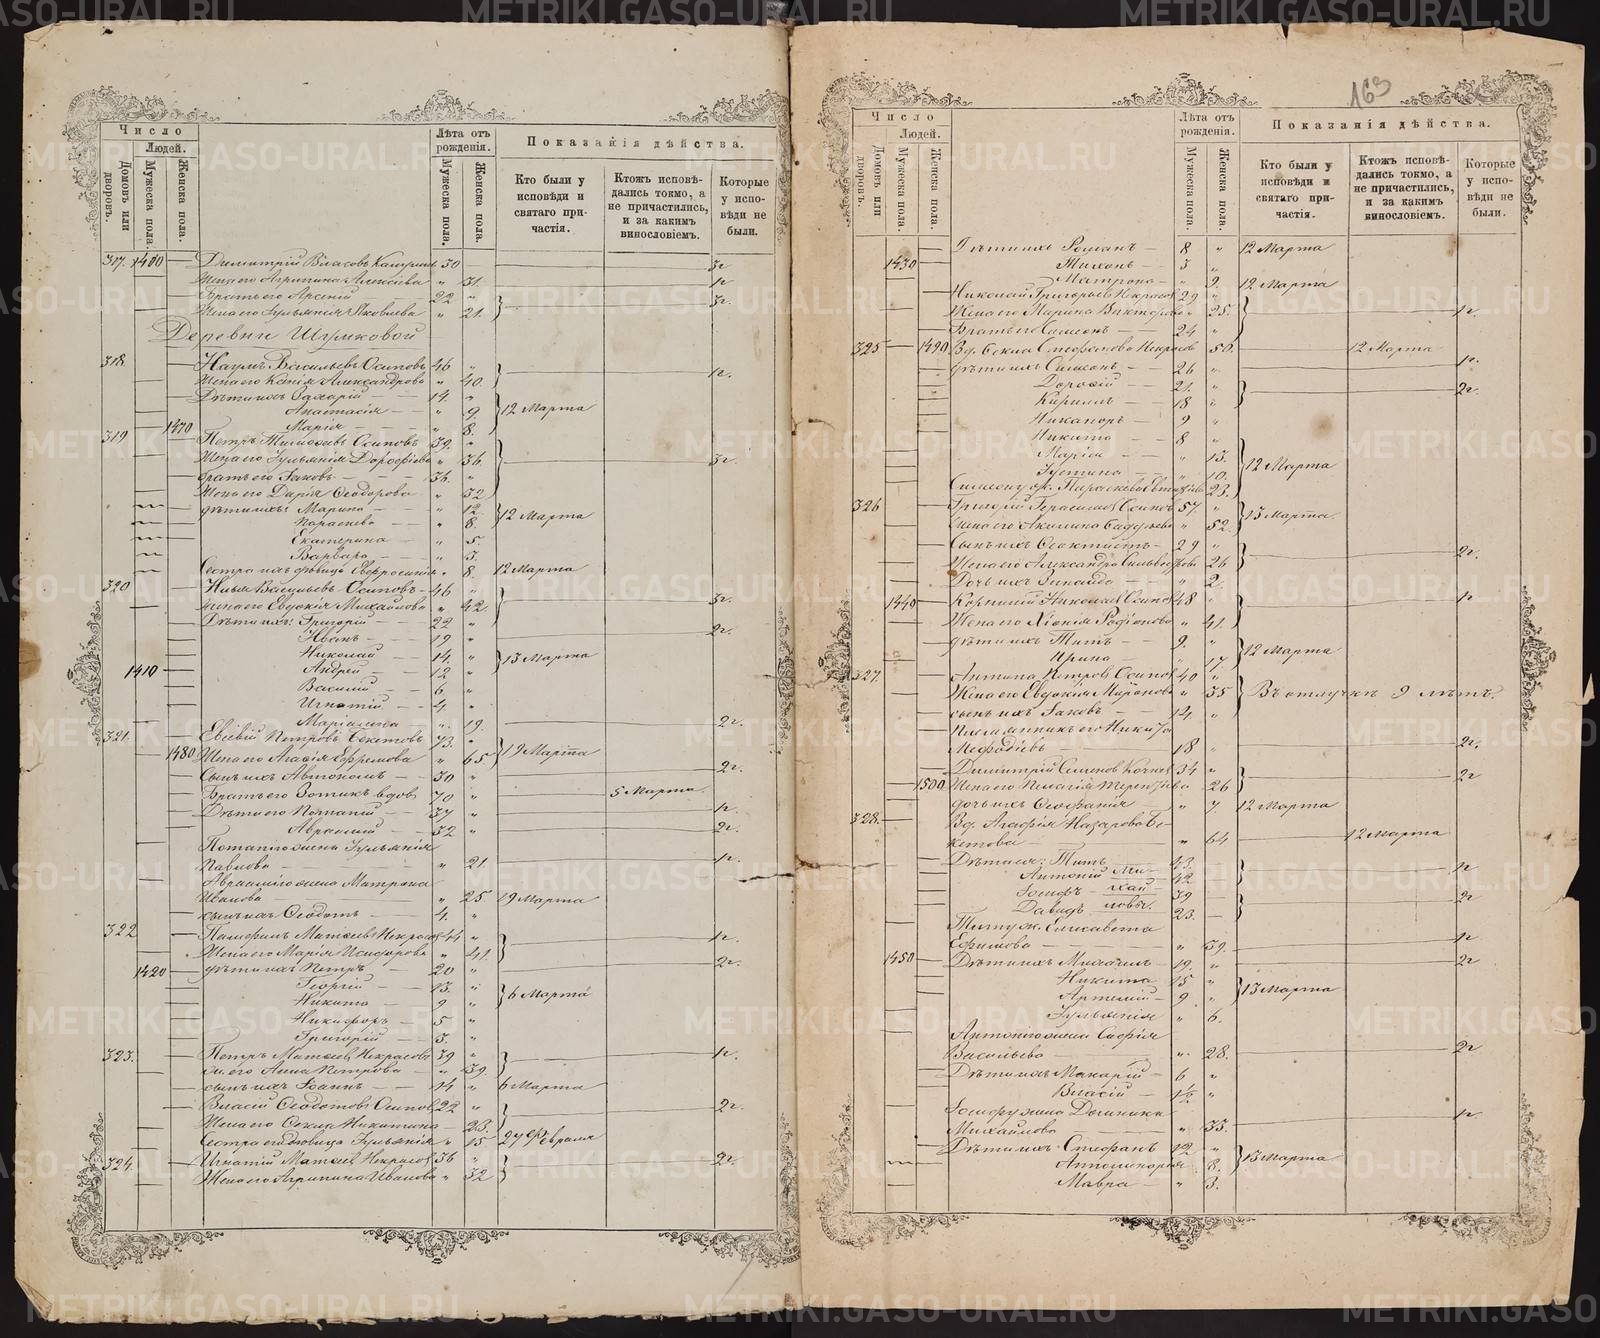 METRIKI.GASO-URAL.RU
163
Число
Людей.
Домовъ или дворовъ.
Мужеска пола.
Женска пола.
Лѣта отъ рожденія.
Мужеска пола.
Женска пола.
Показанія дѣйства.
Кто были у исповѣди и святаго причастія.
Ктожъ исповѣдались токмо, а не причастились, и за какимъ винословіемъ.
Которые у исповѣди не были.
317. 1400 Димитрій Власовъ 30 3г
Жена его Агрипина Алексѣева " 31. 1г
Братъ его Арсеній 22 " 3г.
Жена его Іульянія Яковлева " 21.
Деревни
318. Наумъ Васильевъ Осиповъ 46 " 1г.
Жена его Ксенія Александрова " 40.
Дѣти ихъ Захарій 14. "
Анастасія " 9. 12 Марта
1470 Марія " 8.
319 Петръ Тимоѳеевъ Осиповъ 39. "
Жена его Іульянія Дороѳѣева " 36. 3г.
братъ его Іаковъ 36. "
Жена его Дарія Ѳеодорова " 32
дѣти ихъ: Марина " 12. 12 Марта
Параскева " 8.
Екатерина " 5.
Варвара " 3.
Сестра ихъ дѣвица Евфросинія " 8. 12 Марта
320 Илья Васильевъ Осиповъ 46 "
жена его Евдокія Михайлова " 42. 3г.
Дѣти ихъ: Григорій 22 "
Иванъ 19 " 2г.
Николай 14. " 13 Марта
1410 Андрей 12 "
Василій 6 "
Игнатій 4. "
Маріамна " 19. 2г.
321. Евсевій Петровъ Секетовъ 73. "
1480 Жена его Агаѳія Ефремова " 65 19 Марта
Сынъ ихъ Автономъ 30 " 2г.
Братъ его Зотикъ вдовъ 70 " 5 Марта.
Дѣти его Потапій 37 " 1г.
Авраамій 32 " 2г.
Потапія жена Іульянія
Павлова " 21. 1г.
Авраамія жена Матрона
Иванова " 25. 19 Марта
сынъ ихъ Ѳеодотъ 4. "
322 Памфилъ Матвѣевъ Некрасовъ 44 " 1г.
Жена его Марія Исидорова " 41.
1420 дѣти ихъ Петръ 20 " 2г.
Георгій 13. "
Никита 9 " 6 Марта
Никифоръ 5 "
Григорій 3. "
323. Петръ Матвѣевъ Некрасовъ 39 " 1г.
ж. его Анна Петрова " 39.
сынъ ихъ Іоаннъ 14 " 6 Марта
Власій Ѳеодотовъ Осиповъ 22 " 2г.
Жена его Ѳекла Никитина 23.
Сестра его дѣвица Іульянія " 15 27 Февраля
324. Игнатій Матвѣевъ Некрасовъ 36 " 2г.
Жена его Агрипина Иванова " 32
Число
Людей.
Домовъ или дворовъ.
Мужеска пола.
Женска пола.
Лѣта отъ рожденія.
Мужеска пола.
Женска пола.
Показанія дѣйства.
Кто были у исповѣди и святаго причастія.
Ктожъ исповѣдались токмо, а не причастились, и за какимъ винословіемъ.
Которые у исповѣди не были.
Дѣти ихъ Романъ 8 " 12 Марта
1430 Тихонъ 3 "
Матрона " 9. 12 Марта
Николай Григорьевъ Некрасовъ 29 "
Жена его Марина Викторова " 25. 1г.
Братъ его Симеонъ 24 "
325 1490 Вд. Ѳекла Стефанова Некрасова 50. 12 Марта
дѣти ихъ Симеонъ 26 " 1г.
Дороѳей 21. " 2г.
Кириллъ 18 "
Никаноръ 9 "
Никита 8 "
Марія " 13. 12 Марта
Іустина " 10.
Симеону ж. Параскева 23.
326 Григорій Герасимовъ Осиповъ 57. " 13 Марта.
Жена его Акилина " 52.
Сынъ ихъ Ѳеоктистъ 29 " 2г.
Жена его Александра Сильвестрова 26
Дочь ихъ Зинаида " 2.
1440 Корнилій Николаевъ Осиповъ 48 " 1г
Жена его Хіонія Родіонова " 41.
дѣти ихъ Титъ 9. " 12 Марта
Ирина " 17.
327. Антипа Петровъ Осиповъ 40 "
Жена его Евдокія Миронова " 35 Въ отлучкѣ 9 лѣтъ.
сынъ ихъ Іаковъ 14. "
Племянникъ его Никита
Меѳодіевъ 18 " 2г.
Димитрій Семеновъ 34 " 2г
1500 Жена его Пелагія Терентьева 26
дочь ихъ Ѳеофанія " 7. 12 Марта
328. Вд. Агафія Назарова Се-
кетова " 64 12 Марта
Дѣти ея: Титъ 43. 1г
Антоній Ми- 42
Іосифъ хай- 39 2г
Давидъ ловы. 23.
Титу ж. Елисавета
Ефимова " 39. 1г
1450 Дѣти ихъ Михаилъ 19. " 2г
Никита 15 "
Артемій 9 " 13 Марта
Іульянія " 6.
Антонія жена Софія
Васильева " 28. 2г
Дѣти ихъ Макарій 6 "
Власій 1½ "
Іосифу жена Домника
Михайлова " 33. 1г
Дѣти ихъ Стефанъ 12 " 13 Марта
8.
Мавра " 3.